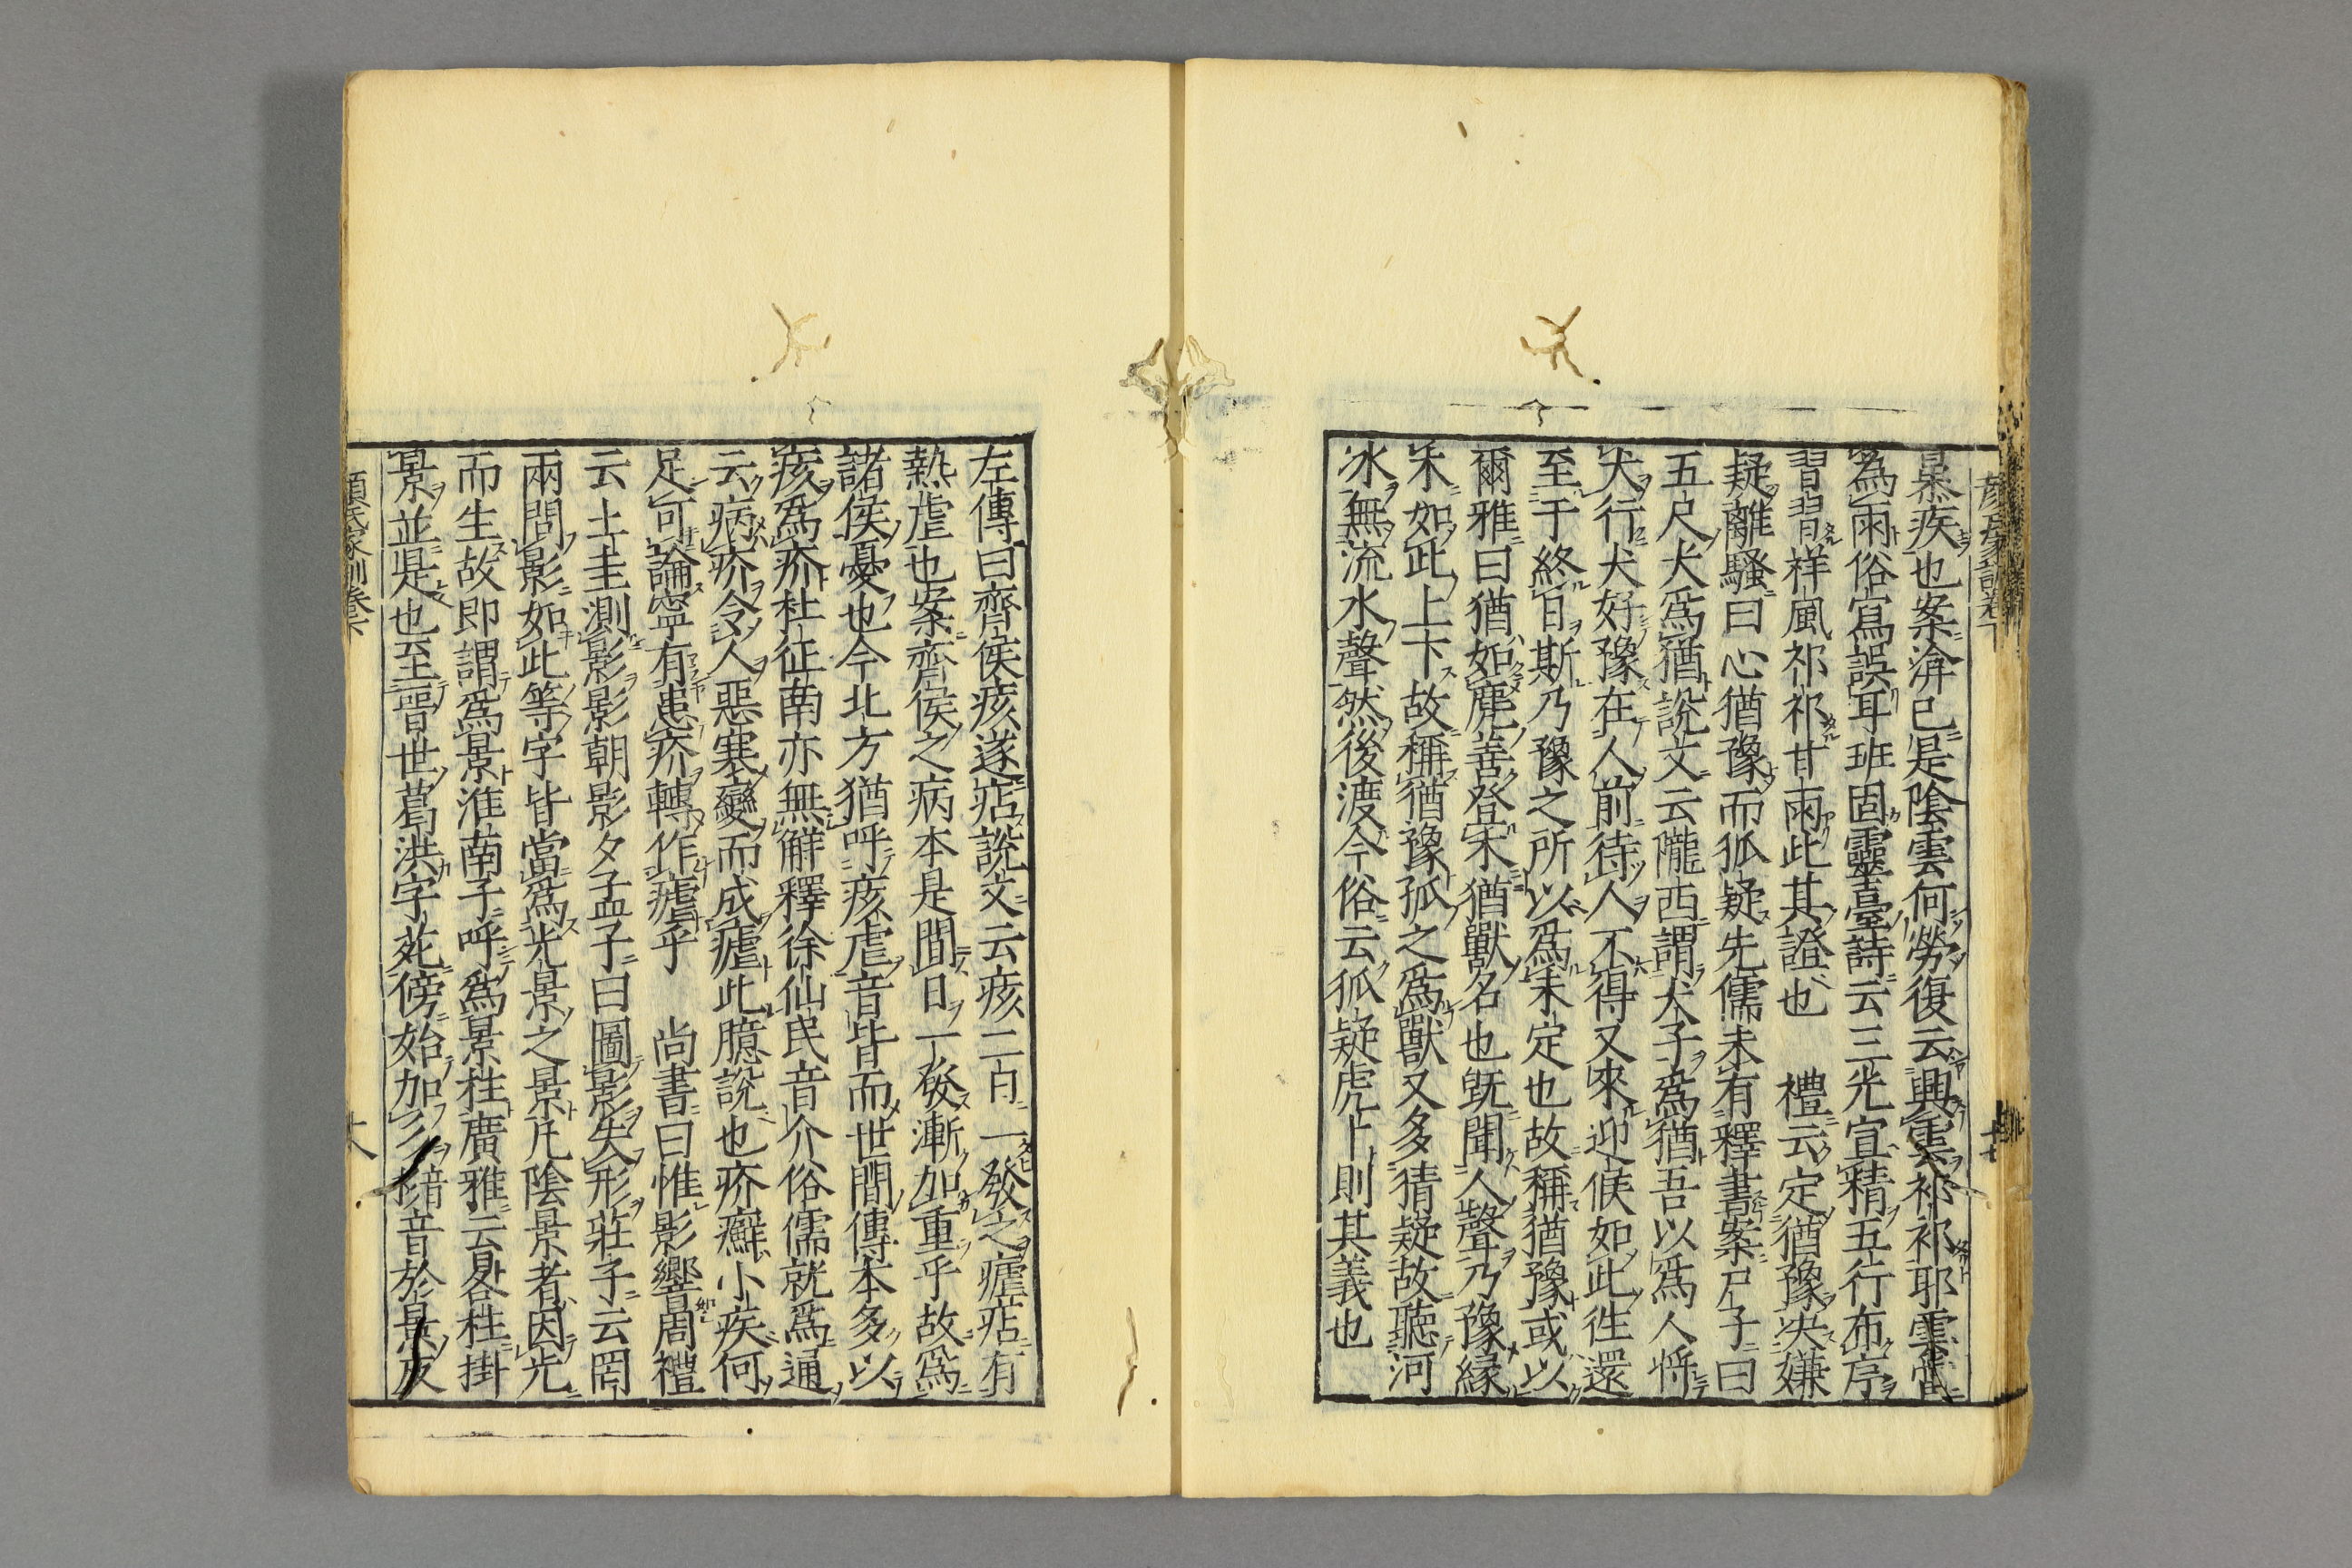 暴疾也案渰已是陰雲何勞復云興雲祁祁耶雲當
為雨俗寫誤耳班固靈臺詩云三光宣精五行布序
習習祥風祁祁甘雨此其證也 禮云定猶豫决嫌
疑離騷曰心猶豫而狐疑先儒未有釋書案尸子曰
五尺犬爲猶說文云隴西謂犬子爲猶吾以爲人將
犬行犬好豫在人前待人不得又來迎候如此徃還
至于終日斯乃豫之所以爲未定也故稱猶豫或以
爾雅曰猶如麂善登木猶獸名也旣聞人聲乃豫緣
木如此上下故稱猶豫狐之爲獸又多猜疑故聽河
冰無流水聲然後渡今俗云狐疑虎卜則其義也
左傳曰齊侯痎遂痁說文云痎二日一發之瘧痁有
熱瘧也案齊侯之病本是間日一發漸加重乎故爲
諸侯憂也今北方猶呼痎瘧音皆而世間傳本多以
痎爲疥杜征南亦無解釋徐仙民音介俗儒就爲通
云病疥令人惡寒變而成瘧此臆說也疥癬小疾何
足可論寧有患疥轉作瘧乎 尚書曰惟影響周禮
云土圭測影影朝影夕孟子曰圖影失形莊子云罔
兩問影如此等字皆當爲光景之景凡陰景者因光
而生故即謂爲景淮南子呼爲景柱廣雅云晷柱掛
景並是也至晉世葛洪字苑傍始加彡音於景反
顏氏家訓卷下